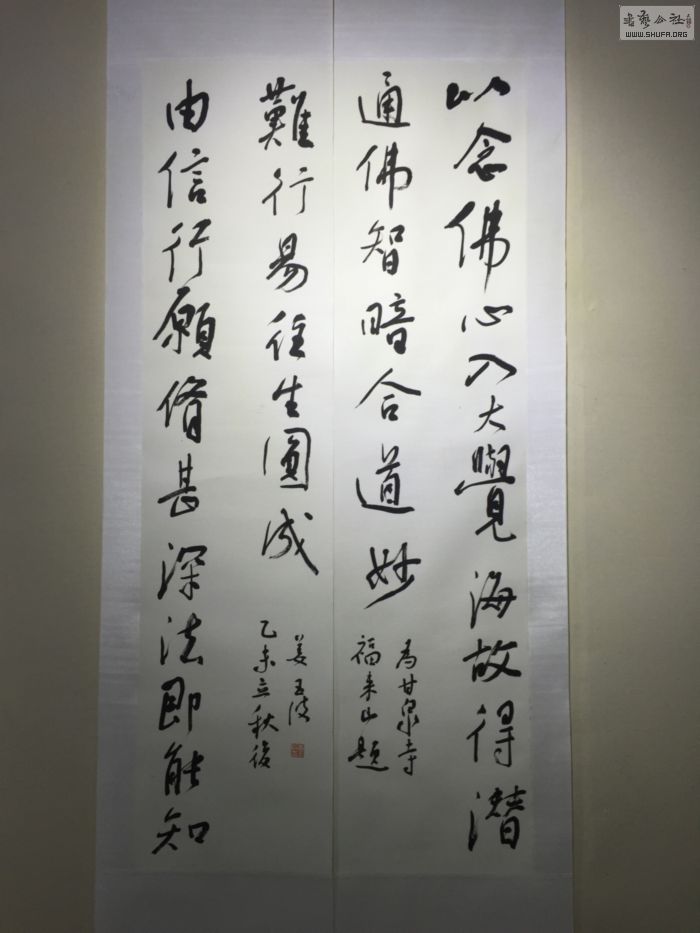 以念佛心入大覺海故得潛
通佛智暗合道妙
為甘泉寺
福来山題
由信行願脩甚深法即能知
難行易往生圓成
乙未立秋後
姜玉波
書藝公社
WWW.SHUFA.ORG